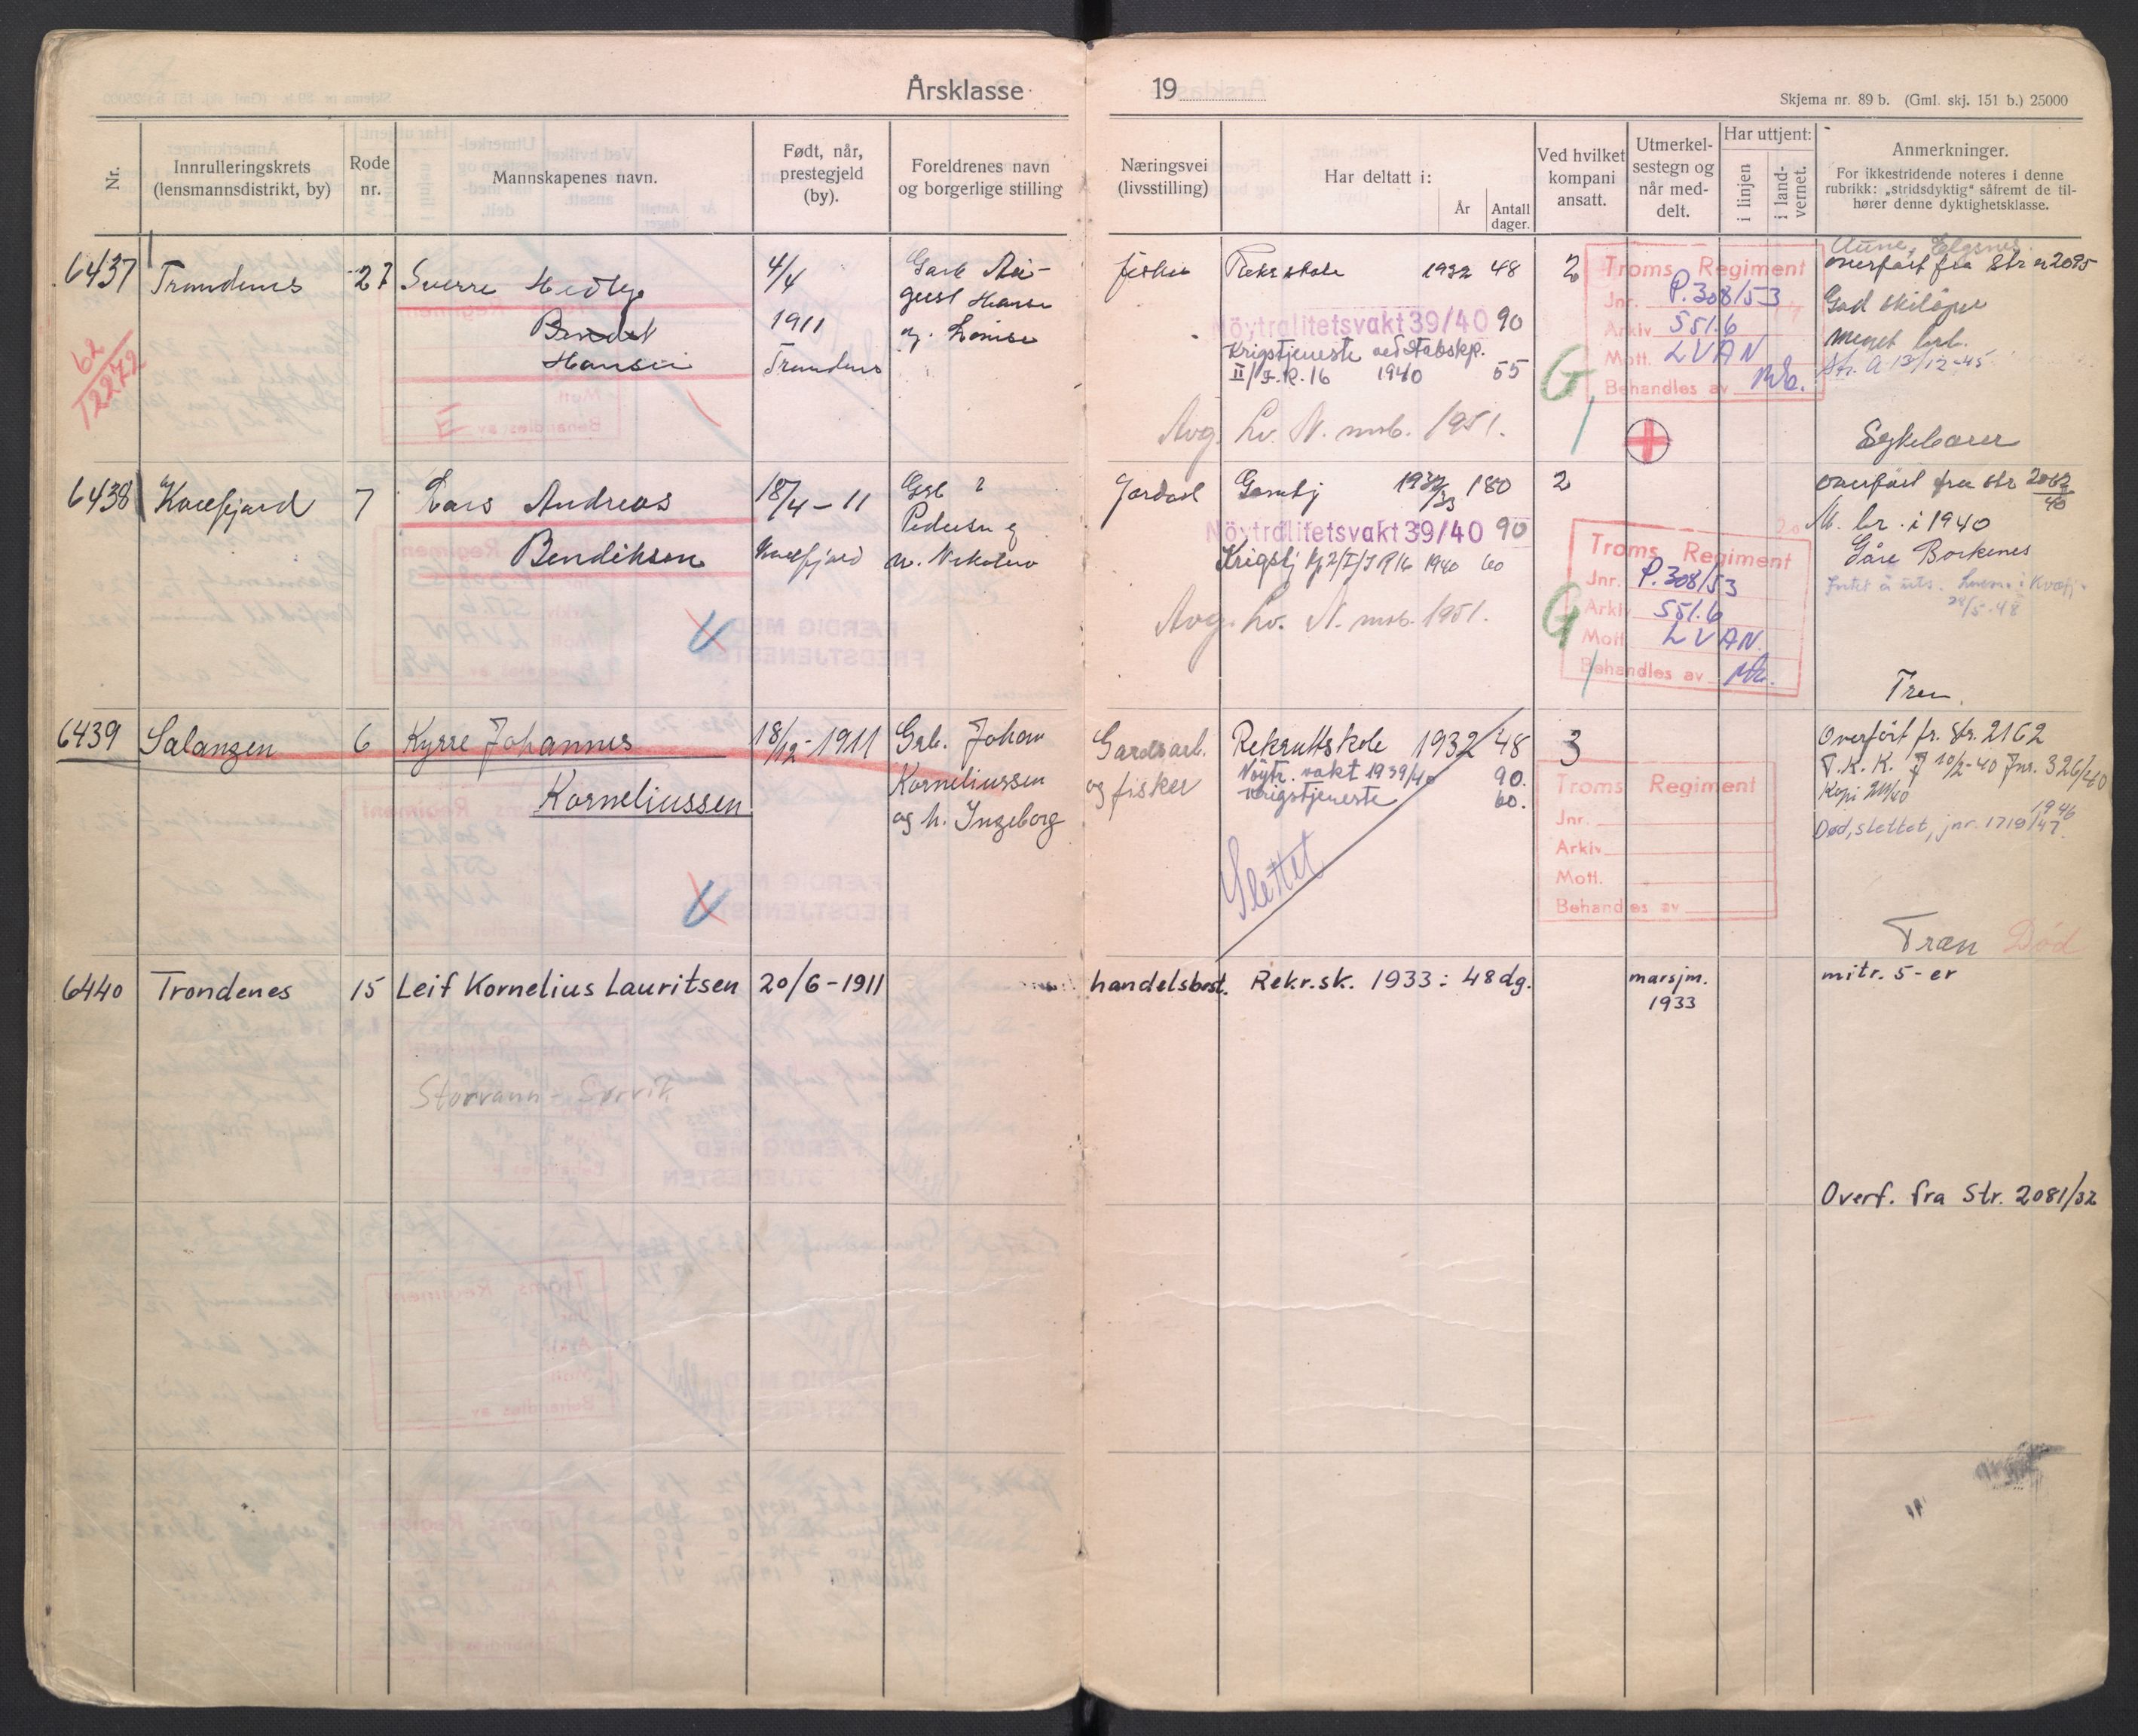 Årsklasse 19
Skjema nr. 89 b. (Gml. skj. 151 b.) 25000
Nr.
Innrulleringskrets
(lensmannsdistrikt, by)
Rode
nr.
Mannskapenes navn.
Født, når,
prestegjeld
(by).
Foreldrenes navn
og borgerlige stilling
Næringsvei
(livsstilling)
Har deltatt i:
År
Antall
dager.
Ved hvilket
kompani
ansatt.
Utmerkel-
sestegn og
når med-
delt.
Har uttjent:
i linjen
i land-
vernet.
Anmerkninger.
For ikkestridende noteres i denne
rubrikk: „stridsdyktig“ såfremt de til-
hører denne dyktighetsklasse.
6437
Trondenes
27
Sverre
Hansen
4/4
1911
Trondenes
62
12272
E
Gaardb Au-
gust Hansen
og Lovise
fisker
Rekrskole 1932 48
Nöytralitetsvakt 39/40 90
Krigstjeneste ved Stabskp.
II/I.R. 16 1940 55
Avg. Lv. N. mob. 1951.
2
G
Troms Regiment
Jnr. P.308/53
Arkiv 551.6
Mott. LVAN
Behandles av
Aune, Elgsnes.
overført fra Str nr 2095
God skiløper
meget brb.
Str. A 13/12-45
Sykebærer
6438
Kvæfjord
7
Lars Andreas
Bendiksen
18/4-11
Kvæfjord
Gsb ?
Pedersen og
h. Nikoline
Jordarb
1932/33 180
Nöytralitetsvakt 39/40 90
Krigstj Kp 2/I/IR16 1940 60
Avg. Lv. N. mob. 1951.
2
G
Troms Regiment
Jnr. P.308/53
Arkiv 551.6
Mott LVAN.
Behandles av
overført fra str 2062/40
M. br. i 1940
Gåre Borkenes
28/5-48
Tren.
6439
Salangen
6
Kyrre Johannes
Korneliussen
18/12-1911
Grb. Johan
Korneliussen
og h. Ingeborg
Gardsarb.
og fisker
Rekruttskole 1932 48
Nöytr. vakt 1939/40 90.
Krigstjeneste 60.
Slettet
3
Troms Regiment
Jnr.
Arkiv
Mott.
Behandles av
Overført fr. Str. 2162
T.K.K. J 10/2-40 Jnr. 326/40
Kopi 211/40
1946
Død, slettet, jnr. 1719/47.
Træn Död
6440
Trondenes
15
Leif Kornelius Lauritsen
20/6-1911
handelsbest.
Rekr.sk. 1933: 48 dg.
marsjm.
1933
mitr. 5-er
Storvann - Sørvik
Overf. fra Str. 2081/32